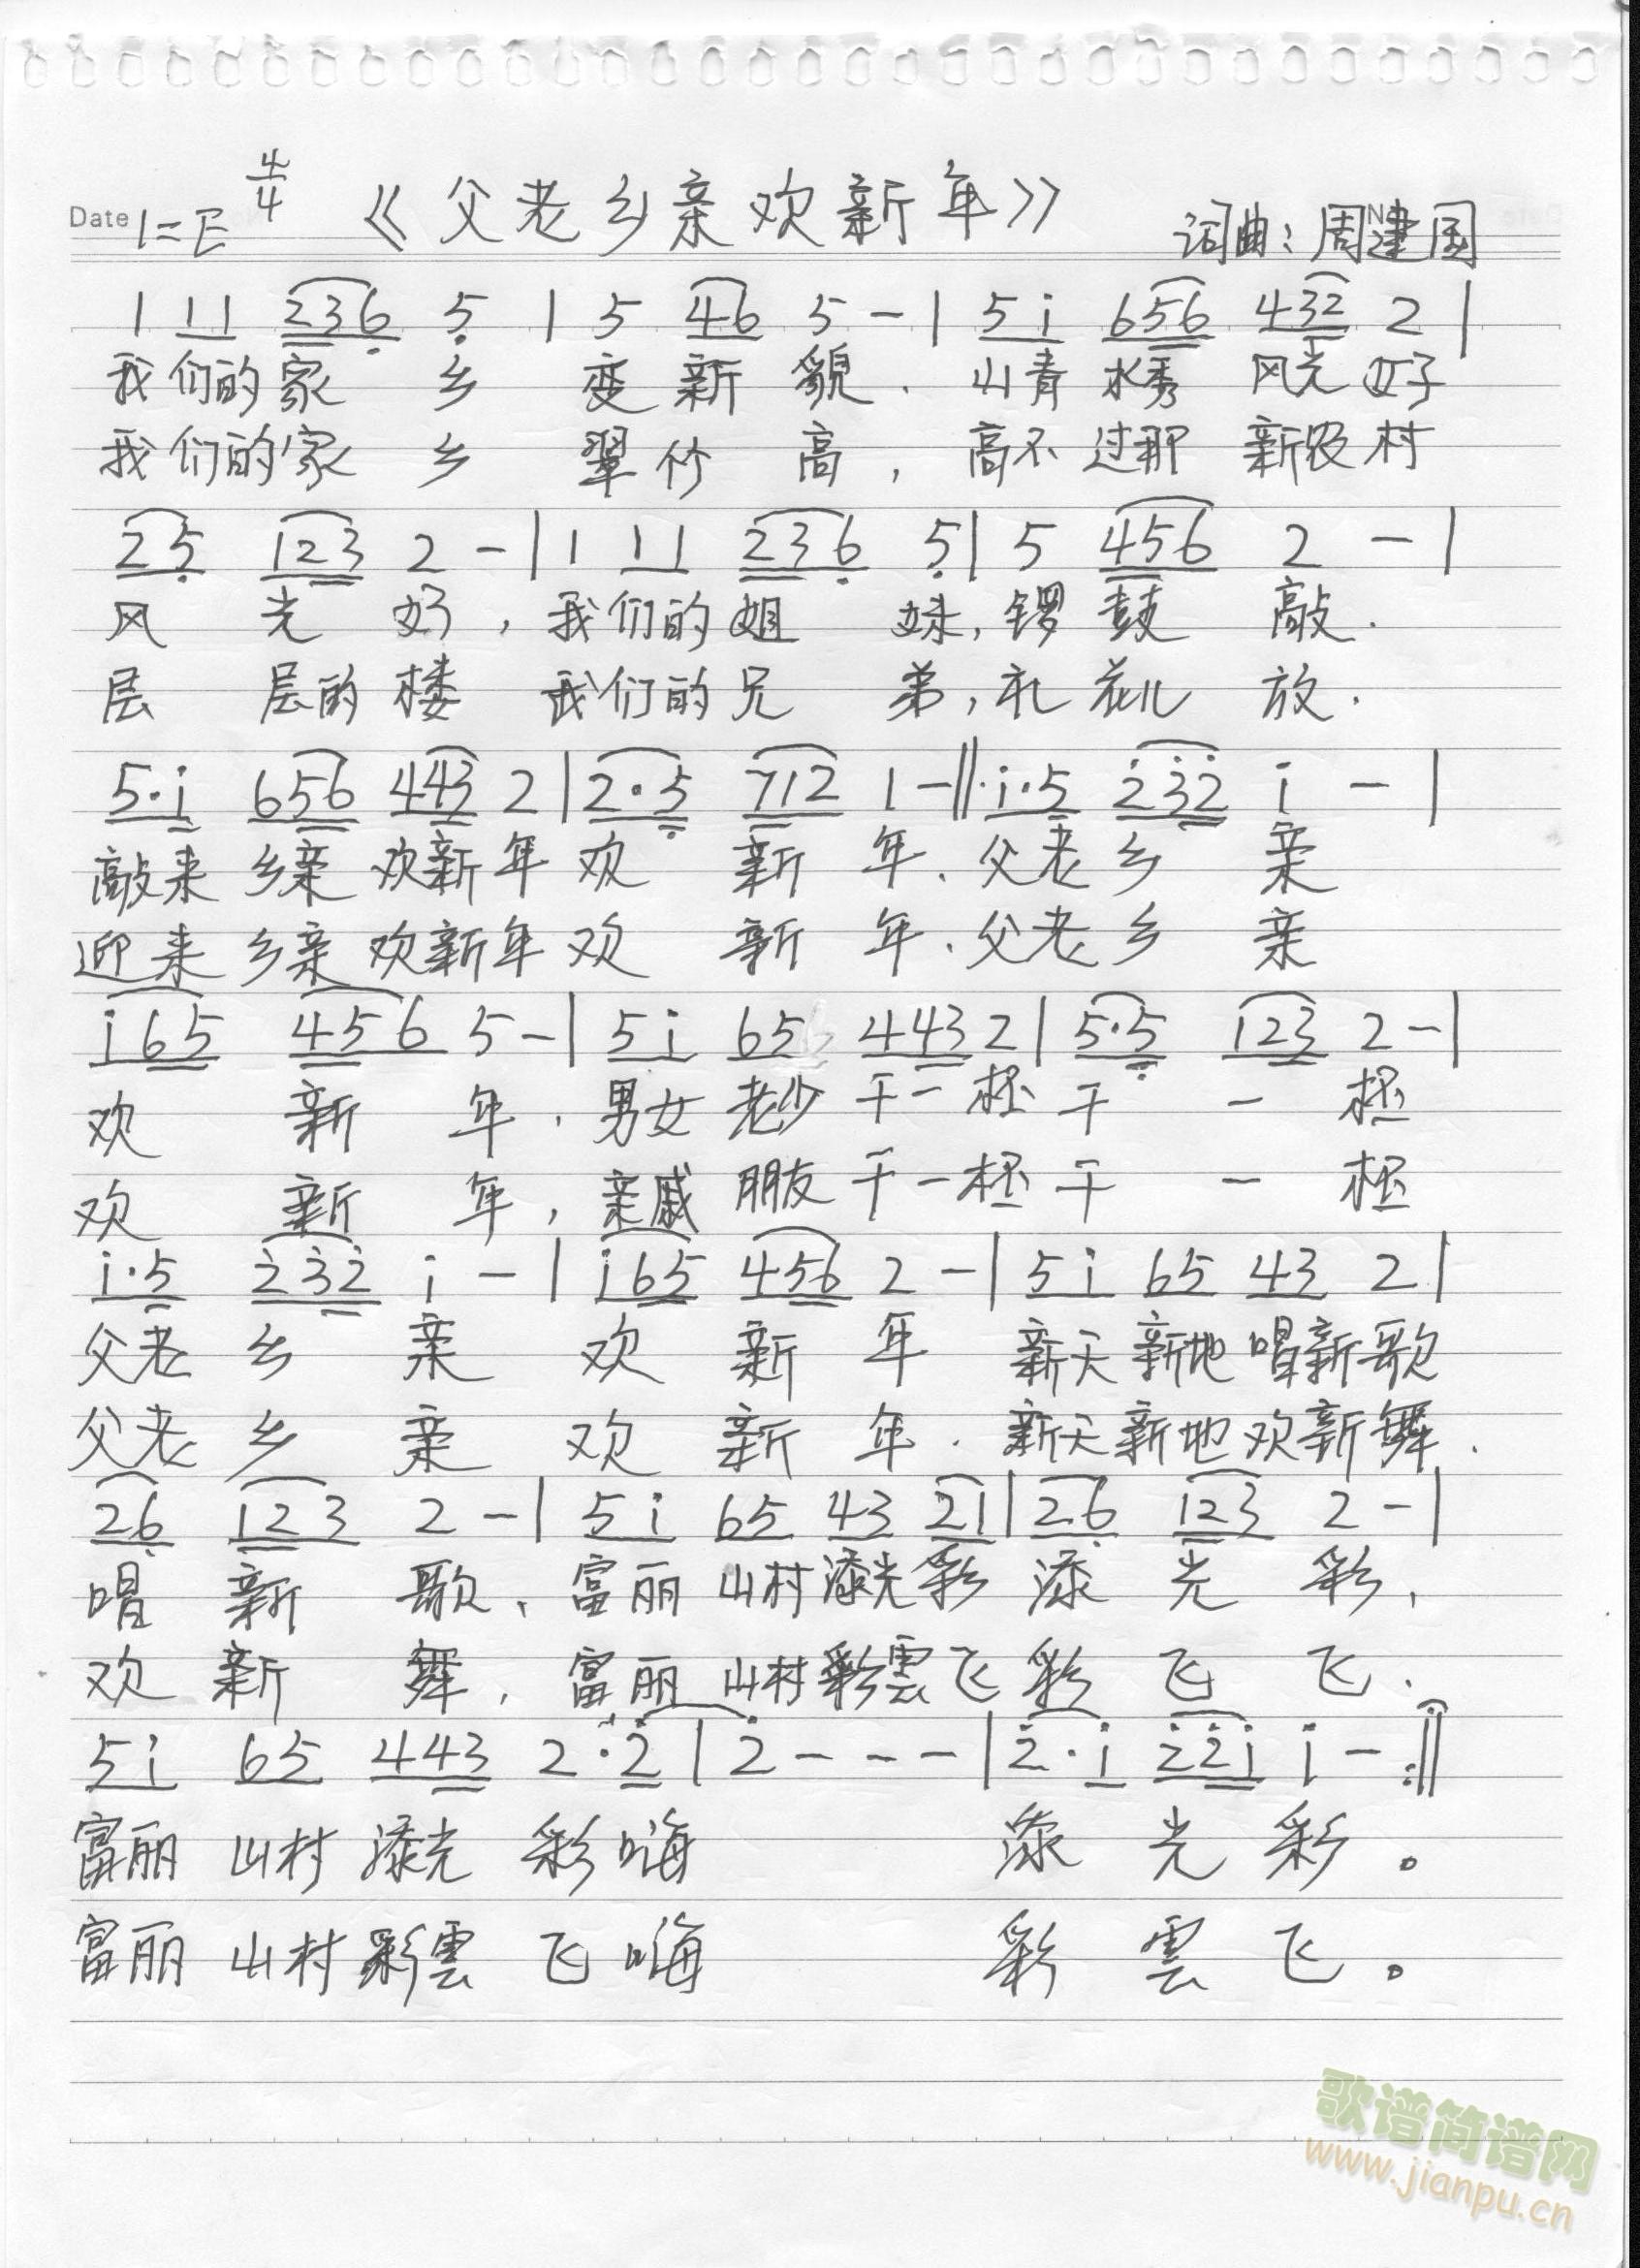 Date 1=E 4/4 《父老乡亲欢新年》 词曲：周建国
1 11 236 5 | 5 46 5 - | 5i 656 432 2 |
我们的家 乡 变新貌. 山青水秀 风光好
我们的家 乡 翠竹高, 高不过那 新农村
25 123 2 - | 1 11 236 5 | 5 456 2 - |
风 光 好, 我们的姐 妹, 锣鼓 敲.
层 层的楼 我们的兄 弟, 礼花儿 放.
5·i 656 443 2 | 2·5 712 1 - ‖: i·5 232 i - |
敲来 乡亲 欢新年 欢 新 年. 父老乡 亲
迎来 乡亲 欢新年 欢 新 年. 父老乡 亲
i65 456 5 - | 5i 65 443 2 | 5·5 123 2 - |
欢 新 年. 男女 老少 干一杯 干 一 杯
欢 新 年, 亲戚 朋友 干一杯 干 一 杯
i·5 232 i - | i65 456 2 - | 5i 65 43 2 |
父老 乡 亲 欢 新 年 新天新地 唱新歌
父老 乡 亲 欢 新 年. 新天新地 欢新舞.
26 123 2 - | 5i 65 43 21 | 26 123 2 - |
唱 新 歌、富丽 山村添光彩 添 光 彩,
欢 新 舞, 富丽 山村彩雲飞 彩 飞 飞.
5i 65 443 2·2 | 2 - - - | 2·i 22i i - :‖
富丽 山村 添光 彩嗨 添 光 彩。
富丽 山村 彩雲 飞嗨 彩 雲 飞。
歌谱简谱网
www.jianpu.cn